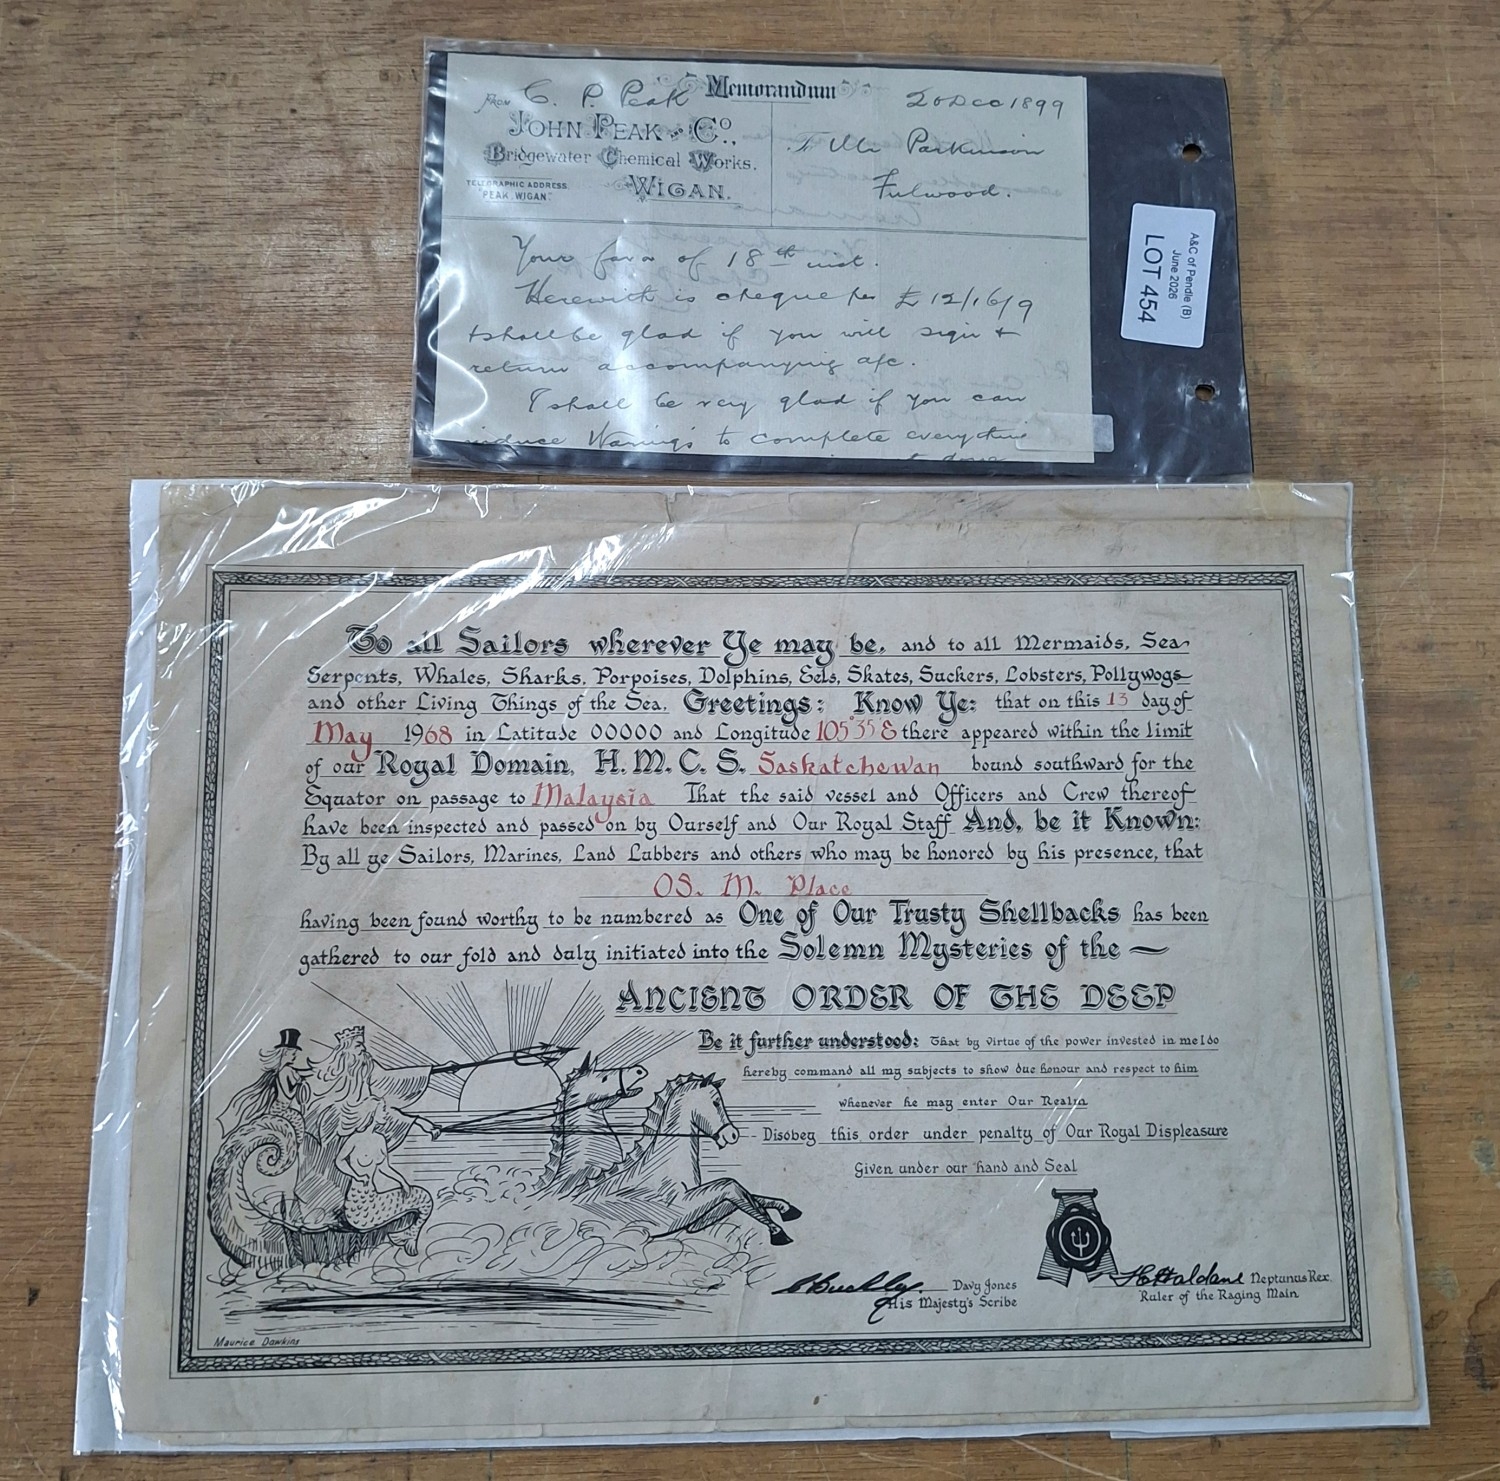 Memorandum
FROM C. P. Peak
20 Dec 1899
JOHN PEAK AND Co.,
To Mr Parkinson
Bridgewater Chemical Works.
Fulwood.
TELEGRAPHIC ADDRESS
"PEAK, WIGAN."
WIGAN.
Your favor of 18th inst.
Herewith is cheque for £12/16/9
& shall be glad if you will sign &
return accompanying a/c.
I shall be very glad if you can
induce to complete everything
A&C of Pendle (B)
June 2026
LOT 454
To all Sailors wherever Ye may be, and to all Mermaids, Sea
Serpents, Whales, Sharks, Porpoises, Dolphins, Eels, Skates, Suckers, Lobsters, Pollywogs
and other Living Things of the Sea, Greetings: Know Ye: that on this 13 day of
May 1968 in Latitude 00000 and Longitude 105°35 E there appeared within the limit
of our Royal Domain, H.M.C.S. Saskatchewan bound southward for the
Equator on passage to Malaysia That the said vessel and Officers and Crew thereof
have been inspected and passed on by Ourself and Our Royal Staff And, be it Known:
By all ye Sailors, Marines, Land Lubbers and others who may be honored by his presence, that
OS. M. Place
having been found worthy to be numbered as One of Our Trusty Shellbacks has been
gathered to our fold and duly initiated into the Solemn Mysteries of the —
ANCIENT ORDER OF THE DEEP
Be it further understood: That by virtue of the power invested in me I do
hereby command all my subjects to show due honour and respect to him
whenever he may enter Our Realm
Disobey this order under penalty of Our Royal Displeasure
Given under our hand and Seal
Davy Jones
His Majesty's Scribe
Haldane Neptunus Rex.
Ruler of the Raging Main
Maurice Dawkins